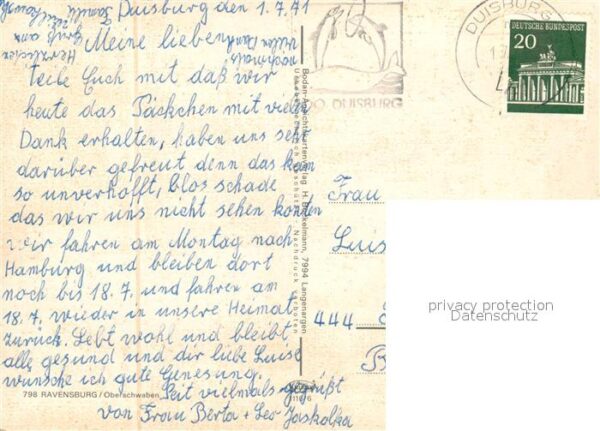 Duisburg den 1.7.71
Meine lieben
Teile Euch mit daß wir
heute das Päckchen mit viel
Dank erhalten, haben uns sehr
darüber gefreut denn das kam
so unverhofft, blos schade
das wir uns nicht sehen konten
wir fahren am Montag nach
Hamburg und bleiben dort
noch bis 18.7. und fahren am
18.7. wieder in unsere Heimat
zurück. Lebt wohl und bleibt
alle gesund und dir liebe Luise
wünsche ich gute Genesung.
Seit vielmals gegrüßt
von Frau Berta + Leo Jaskolka
nochmals
vielen Dank
Herzlichen
Gruß
798 RAVENSBURG / Oberschwaben
Bodan-Ansichtskartenverlag H. Dinkelmann, 7994 Langenargen
Nachdruck verboten
ZOO. DUISBURG
DUISBURG
DEUTSCHE BUNDESPOST
20
Frau
Luis
444
B
privacy protection
Datenschutz